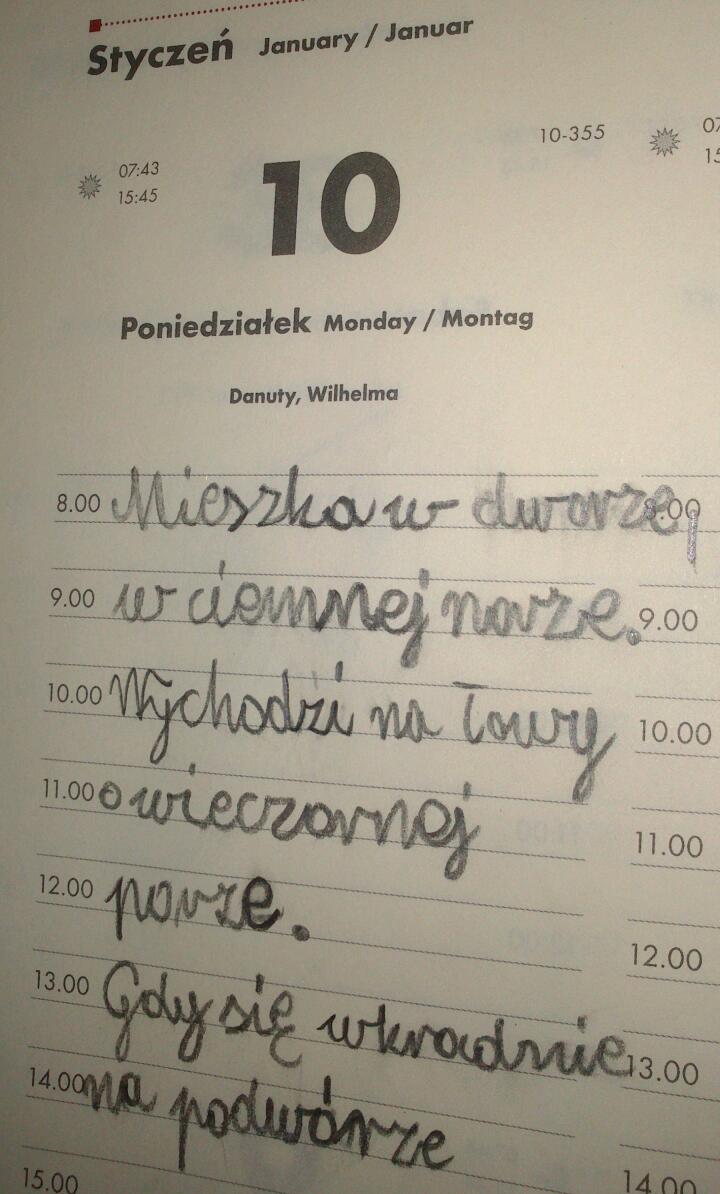 Styczeń January / Januar
10-355
07:43
15:45
10
Poniedziałek Monday / Montag
Danuty, Wilhelma
8.00 Mieszka w dworze, 8.00
9.00 w ciemnej norze. 9.00
10.00 Wychodzi na łowy 10.00
11.00 o wieczornej 11.00
12.00 porze. 12.00
13.00 Gdy się wkradnie 13.00
14.00 na podwórze 14.00
15.00